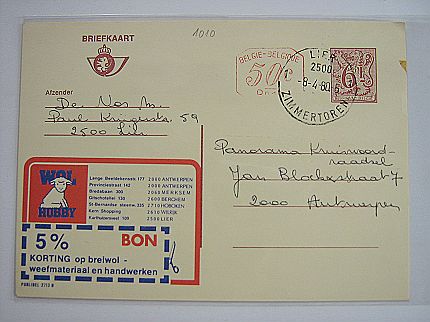 1010
BRIEFKAART
BELGIE-BELGIQUE
50c
LIER
2500
-8-4-80
ZIMMERTOREN
6F
Afzender
De Vos M.
Paul Krugerstr. 59
2500 Lier
Panorama Kruiswoord-
raadsel
Jan Blockxstraat 7
2000 Antwerpen
WOL
HOBBY
Lange Beeldekensstr. 177 2000 ANTWERPEN
Provinciestraat 142 2000 ANTWERPEN
Bredabaan 300 2060 MERKSEM
Gitschotellei 130 2600 BERCHEM
St-Bernardse steenw. 335 2710 HOBOKEN
Kern Shopping 2610 WILRIJK
Karthuizersvest 109 2500 LIER
5% BON
KORTING op breiwol -
weefmateriaal en handwerken
PUBLIBEL 2713 N